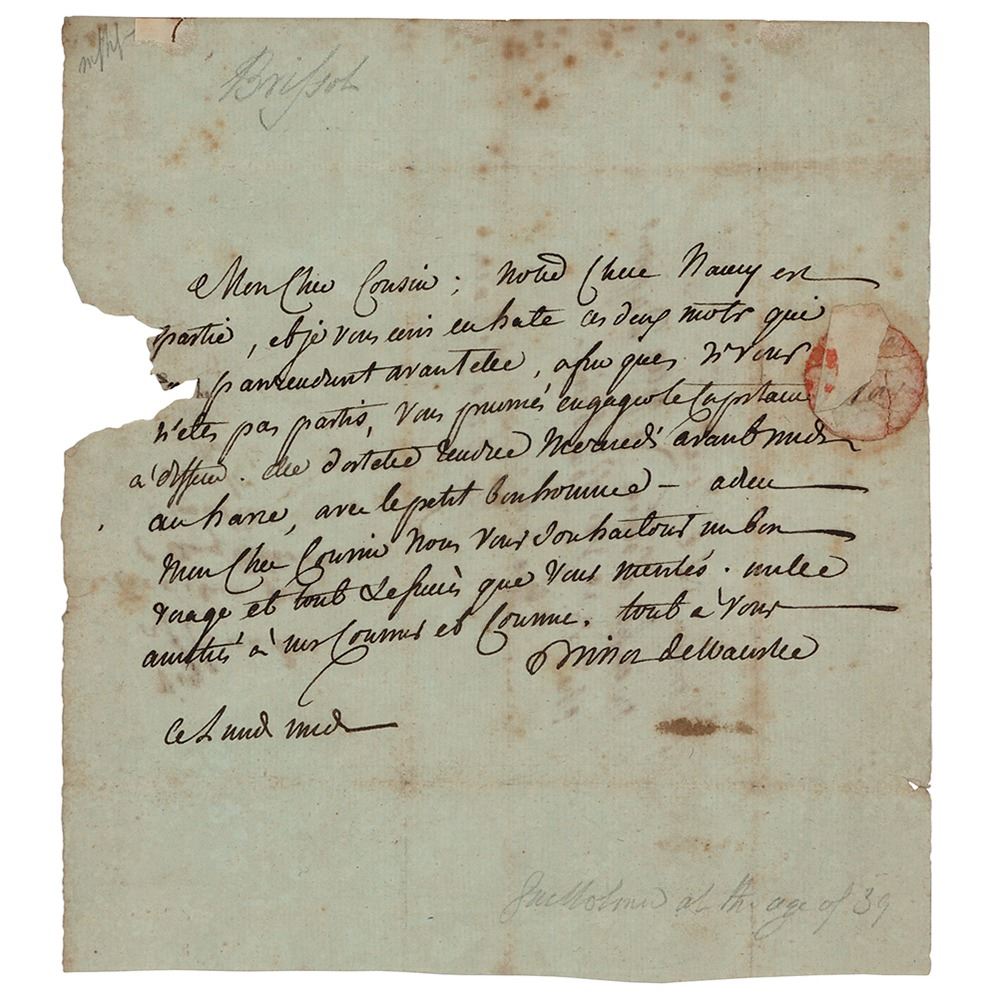 Brissot
Mon Cher Cousin ; notre Chere Nancy est
partie, et je vous ecris en hate ces deux mots qui
parviendront avant elle, afin que si vous
n'etes pas partis, vous puissiés engager le Capitaine
à differer. elle doit etre rendue Mercredi avant midi
au havre, avec le petit bonhomme – adieu
Mon Cher Cousin Nous vous souhaitons un bon
voyage et tout le succès que vous merités. mille
amitiés à nos Cousins et Cousine. tout à vous
Brissot deWarville
Ce Lundi midi
Guillotined at the age of 39